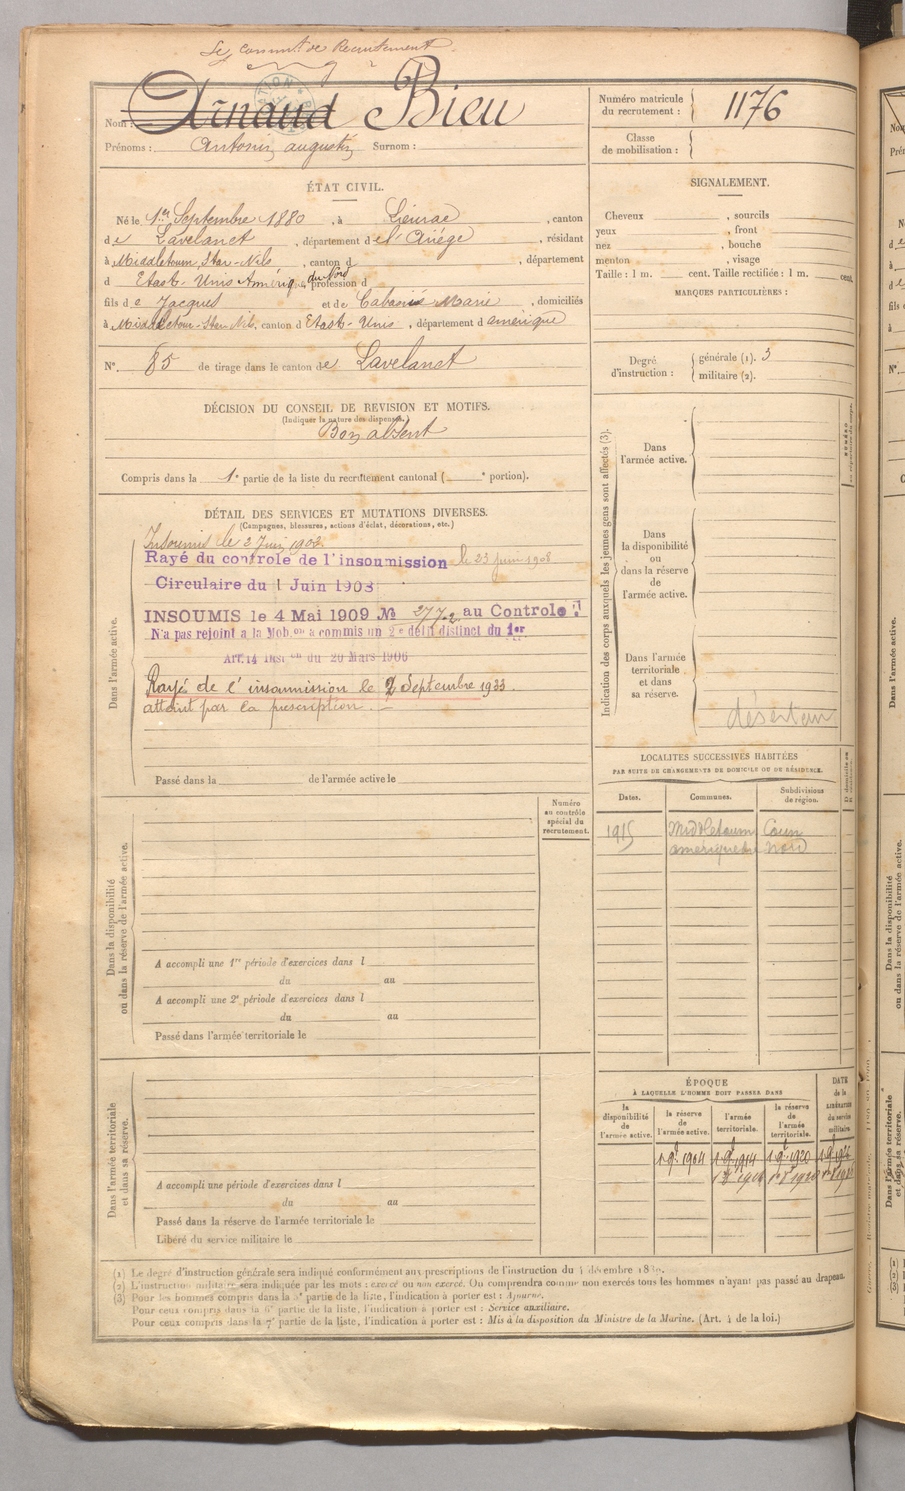 Le Commt de Recrutement
Nom : Arnaud Bieu
Prénoms : Antonin, Augustin, Surnom :
Numéro matricule du recrutement : 1176
Classe de mobilisation :
ÉTAT CIVIL.
Né le 1er Septembre 1880, à Lieurac, canton
de Lavelanet, département de l'Ariège, résidant
à Middletown, , canton d , département
d Etast-Unis Amérique du Nord, profession d
fils de Jacques et de Cabanié Marie, domiciliés
à , canton d Etast-Unis, département d amérique
N°. 85 de tirage dans le canton de Lavelanet
DÉCISION DU CONSEIL DE REVISION ET MOTIFS.
(Indiquer la nature des dispenses.)
Bon absent
Compris dans la 1e partie de la liste du recrutement cantonal ( e portion).
SIGNALEMENT.
Cheveux , sourcils
yeux , front
nez , bouche
menton , visage
Taille : 1 m. cent. Taille rectifiée : 1 m. cent.
MARQUES PARTICULIÈRES :
Degré d'instruction : générale (1). 3
militaire (2).
DÉTAIL DES SERVICES ET MUTATIONS DIVERSES.
(Campagnes, blessures, actions d'éclat, décorations, etc.)
Dans l'armée active.
Insoumis le 2 Juin 1902
Rayé du controle de l'insoumission le 23 juin 1908
Circulaire du 1 Juin 1908
INSOUMIS le 4 Mai 1909 No 277-2 au Controle
N'a pas rejoint a la Mob.on a commis un 2e délit distinct du 1er
Art.14 Instron du 20 Mars 1906
Rayé de l'insoumission le 2 Septembre 1933.
atteint par la prescription.
Passé dans la de l'armée active le
Indication des corps auxquels les jeunes gens sont affectés (3).
Dans l'armée active.
Dans la disponibilité ou dans la réserve de l'armée active.
Dans l'armée territoriale et dans sa réserve.
déserteur
LOCALITES SUCCESSIVES HABITÉES
PAR SUITE DE CHANGEMENTS DE DOMICILE OU DE RÉSIDENCE.
Dates. Communes. Subdivisions de région.
1915 Middletown Coun
amérique du Nord
Numéro au contrôle spécial du recrutement.
Dans la disponibilité ou dans la réserve de l'armée active.
A accompli une 1re période d'exercices dans l
du au
A accompli une 2e période d'exercices dans l
du au
Passé dans l'armée territoriale le
Dans l'armée territoriale et dans sa réserve.
A accompli une période d'exercices dans l
du au
Passé dans la réserve de l'armée territoriale le
Libéré du service militaire le
ÉPOQUE
À LAQUELLE L'HOMME DOIT PASSER DANS
la disponibilité de l'armée active.
la réserve de l'armée active.
l'armée territoriale.
la réserve de l'armée territoriale.
DATE de la LIBÉRATION du service militaire
1904 1914 1920 1926
(1) Le degré d'instruction générale sera indiqué conformément aux prescriptions de l'instruction du 4 décembre 18
(2) L'instruction militaire sera indiquée par les mots : exercé ou non exercé. On comprendra comme non exercés tous les hommes n'ayant pas passé au drapeau.
(3) Pour les hommes compris dans la 5e partie de la liste, l'indication à porter est : Ajourné.
Pour ceux compris dans la 6e partie de la liste, l'indication à porter est : Service auxiliaire.
Pour ceux compris dans la 7e partie de la liste, l'indication à porter est : Mis à la disposition du Ministre de la Marine. (Art. 4 de la loi.)